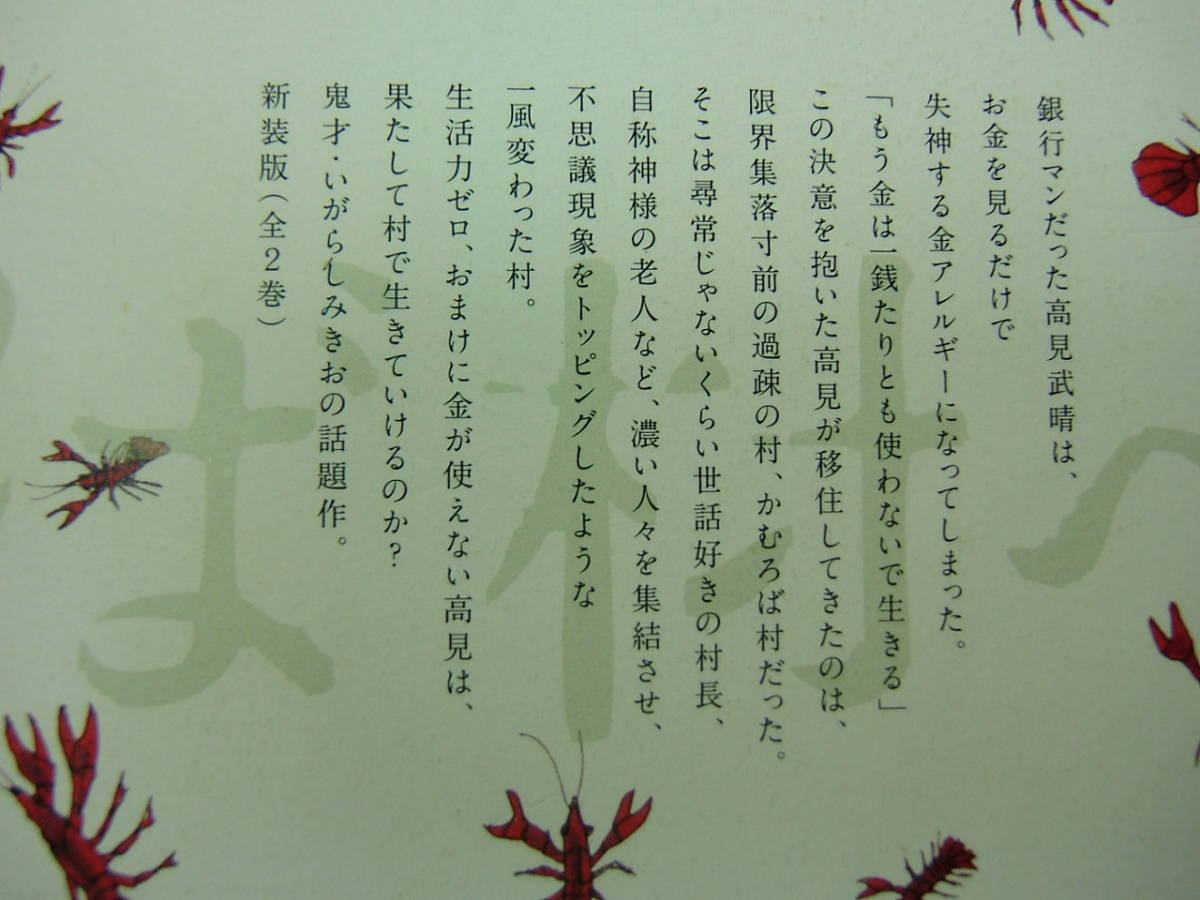 銀行マンだった高見武晴は、
お金を見るだけで
失神する金アレルギーになってしまった。
「もう金は一銭たりとも使わないで生きる」
この決意を抱いた高見が移住してきたのは、
限界集落寸前の過疎の村、かむろば村だった。
そこは尋常じゃないくらい世話好きの村長、
自称神様の老人など、濃い人々を集結させ、
不思議現象をトッピングしたような
一風変わった村。
生活力ゼロ、おまけに金が使えない高見は、
果たして村で生きていけるのか?
鬼才・いがらしみきおの話題作。
新装版(全2巻)
ば村へ